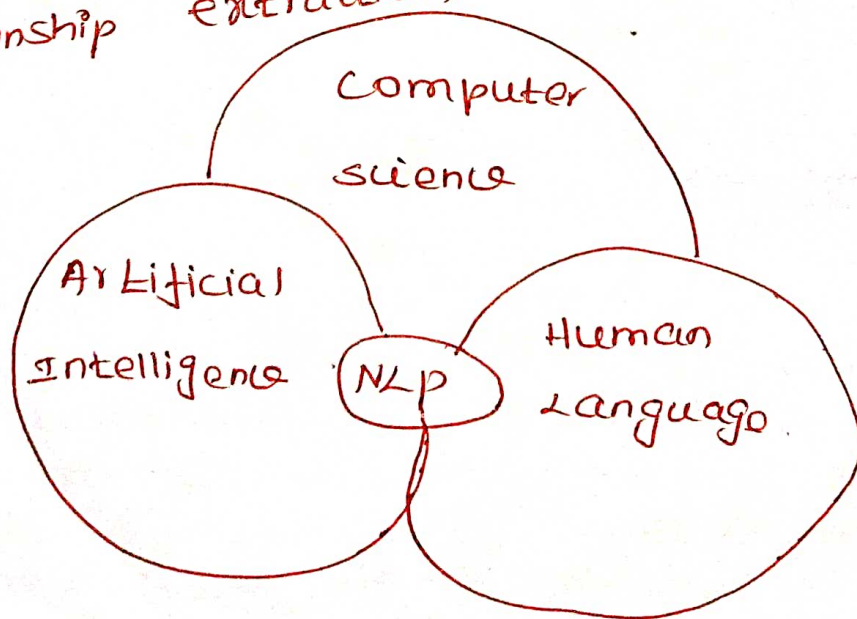 nship
Computer
science
Artificial
Intelligence
NLP
Human
Language